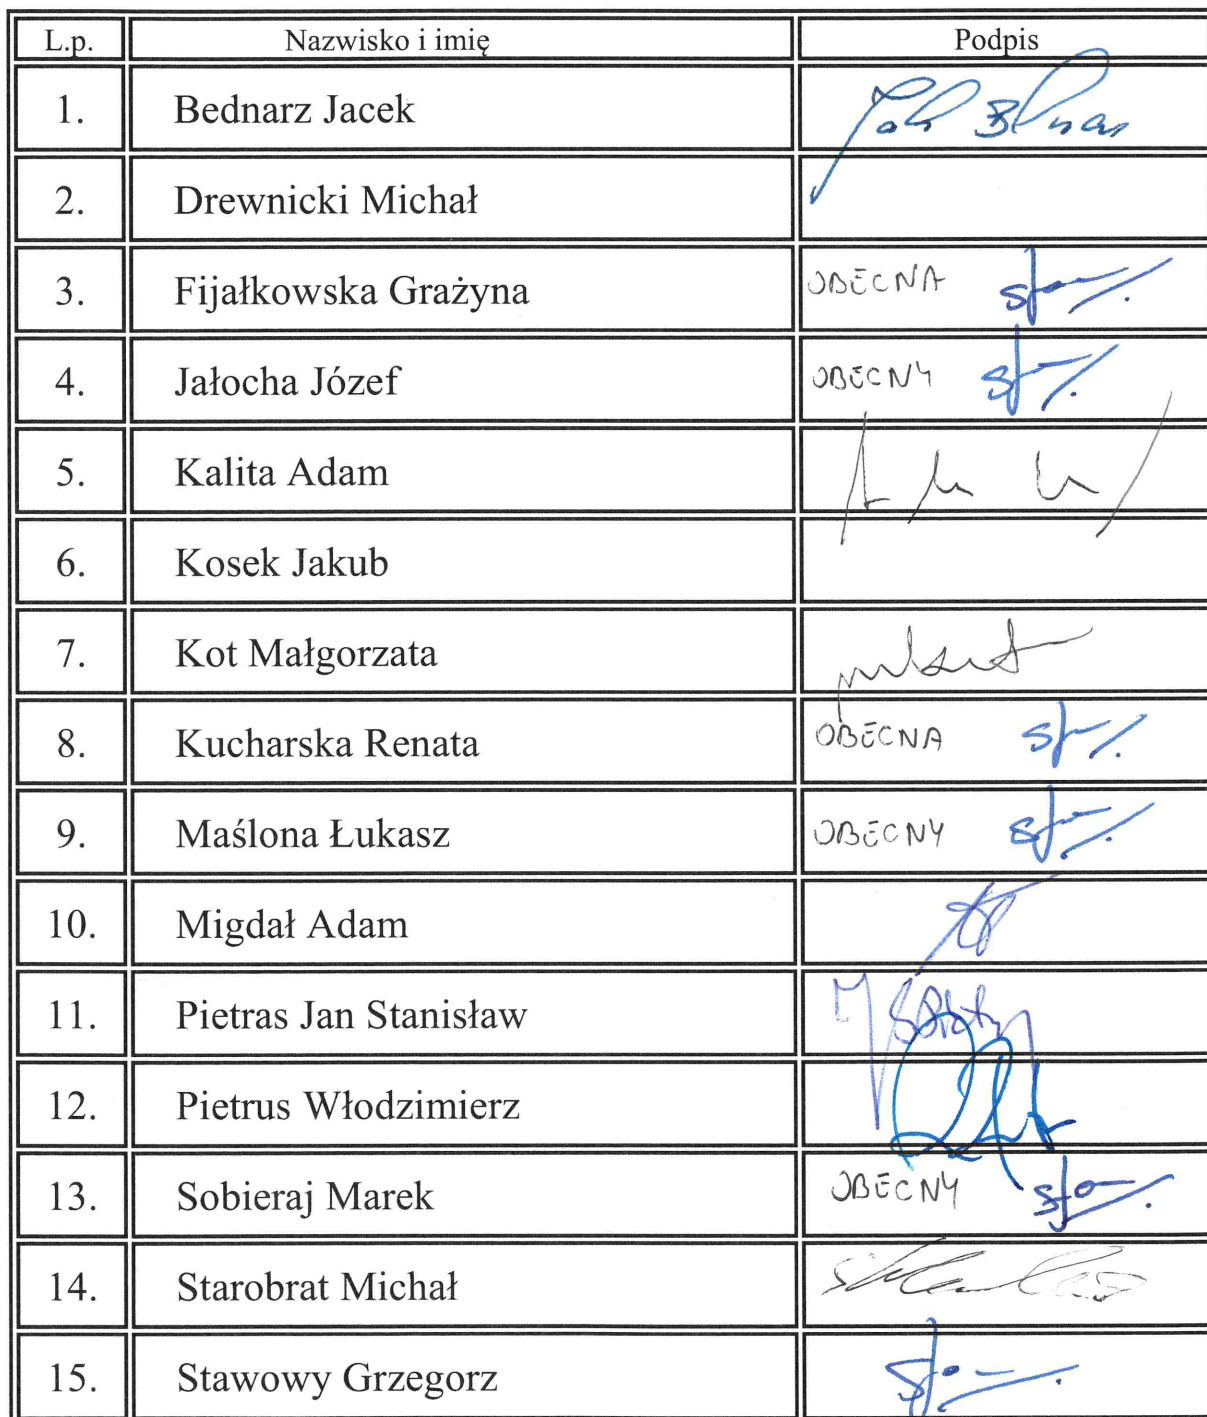 L.p. Nazwisko i imię Podpis
1. Bednarz Jacek
2. Drewnicki Michał
3. Fijałkowska Grażyna OBECNA
4. Jałocha Józef OBECNY
5. Kalita Adam
6. Kosek Jakub
7. Kot Małgorzata
8. Kucharska Renata OBECNA
9. Maślona Łukasz OBECNY
10. Migdał Adam
11. Pietras Jan Stanisław
12. Pietrus Włodzimierz
13. Sobieraj Marek OBECNY
14. Starobrat Michał
15. Stawowy Grzegorz